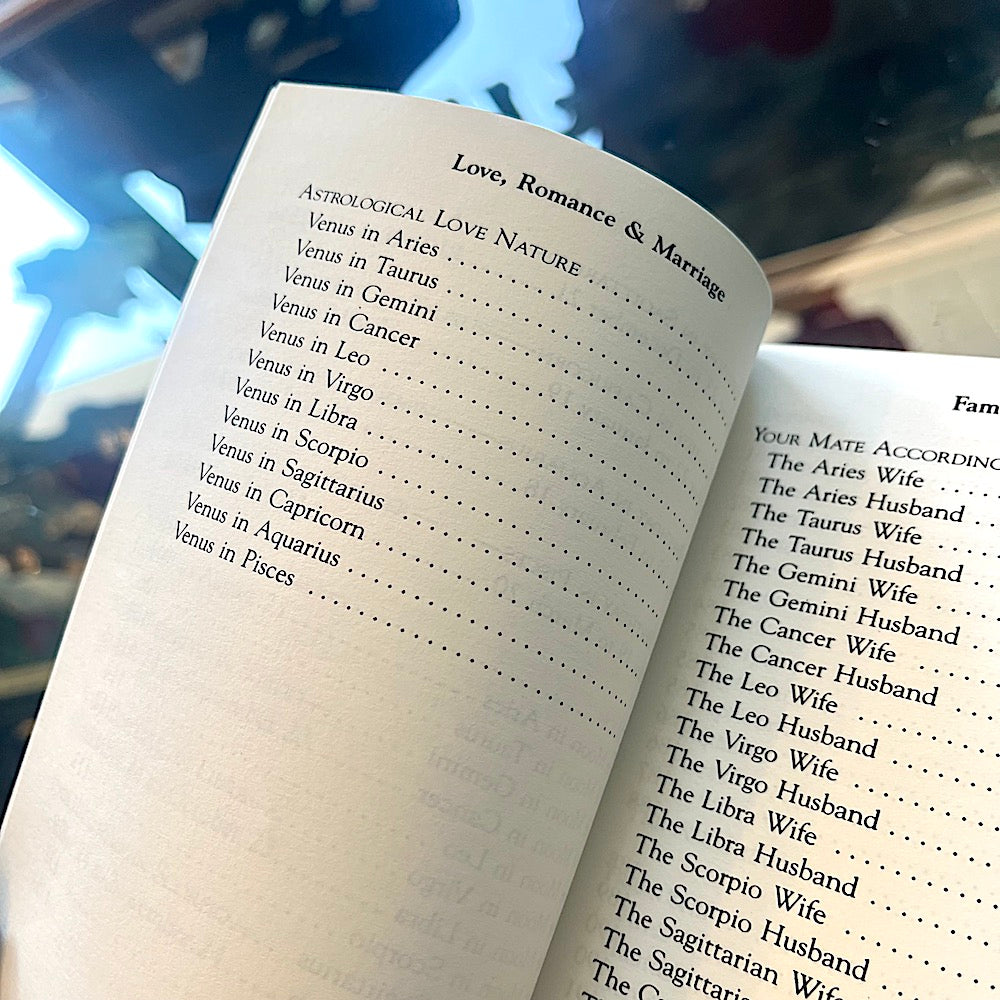 Love, Romance & Marriage
ASTROLOGICAL LOVE NATURE
Venus in Aries
Venus in Taurus
Venus in Gemini
Venus in Cancer
Venus in Leo
Venus in Virgo
Venus in Libra
Venus in Scorpio
Venus in Sagittarius
Venus in Capricorn
Venus in Aquarius
Venus in Pisces
Fam
YOUR MATE ACCORDING
The Aries Wife
The Aries Husband
The Taurus Wife
The Taurus Husband
The Gemini Wife
The Gemini Husband
The Cancer Wife
The Cancer Husband
The Leo Wife
The Leo Husband
The Virgo Wife
The Virgo Husband
The Libra Wife
The Libra Husband
The Scorpio Wife
The Scorpio Husband
The Sagittarian Wife
The Sagittaria
The Ca